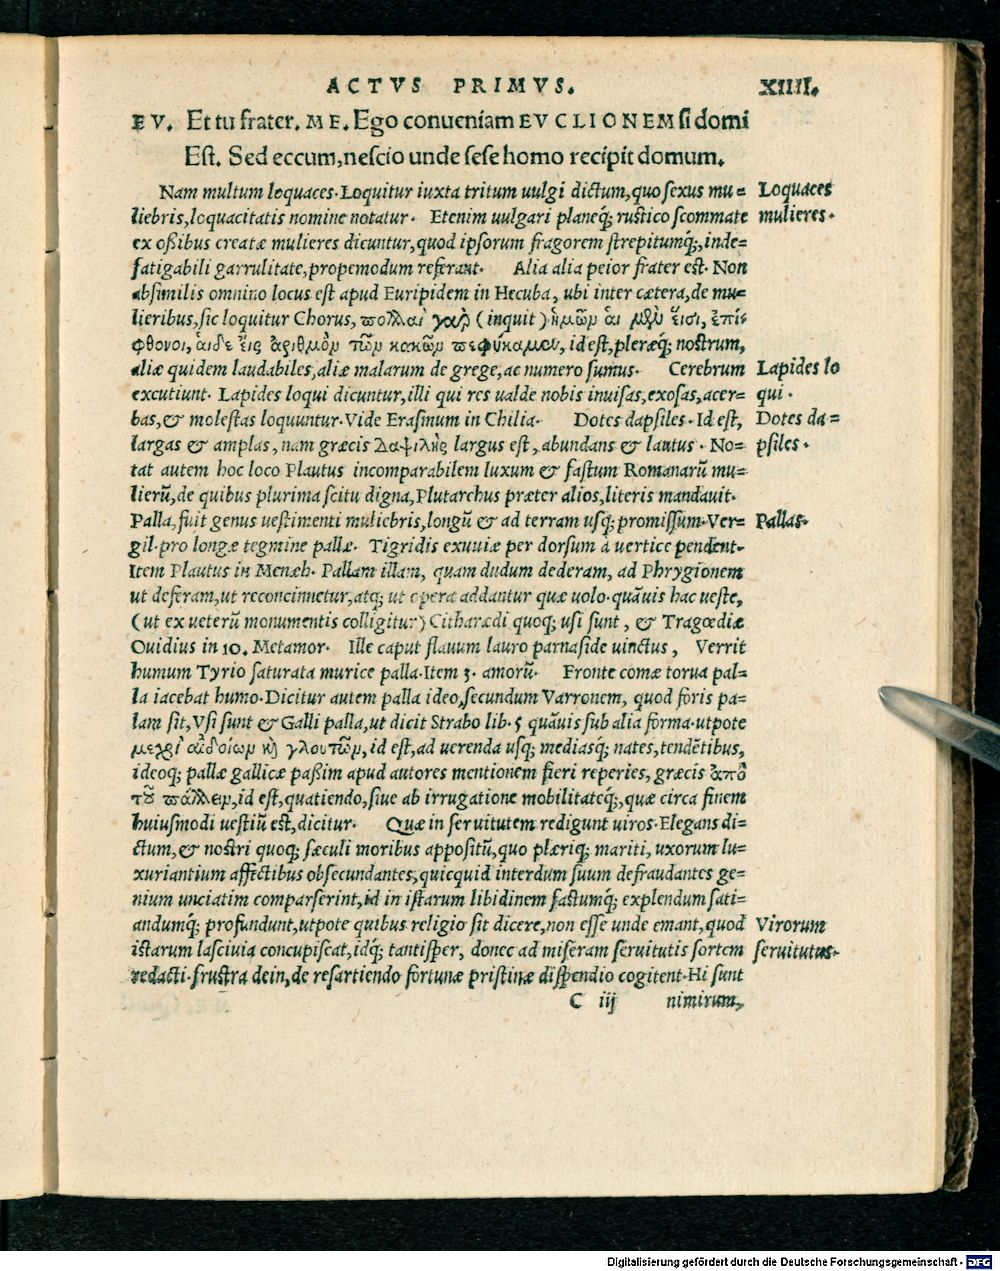 ACTVS PRIMVS. XIIII.
EV. Et tu frater. ME. Ego conueniam EVCLIONEM si domi
Est. Sed eccum, nescio unde sese homo recipit domum.
Nam multum loquaces. Loquitur iuxta tritum uulgi dictum, quo sexus mu= Loquaces
liebris, loquacitatis nomine notatur. Etenim uulgari planeq; rustico scommate mulieres.
ex oßibus creatæ mulieres dicuntur, quod ipsorum fragorem strepitumq;, inde=
fatigabili garrulitate, propemodum referant. Alia alia peior frater est. Non
absimilis omnino locus est apud Euripidem in Hecuba, ubi inter cætera, de mu=
lieribus, sic loquitur Chorus, πολλαὶ γὰρ (inquit) ἡμῶν αἱ μὲν εἰσι, ἐπί-
φθονοι, αἱδε εἰς ἀριθμὸν τῶν κακῶν πεφύκαμεν, id est, pleræq; nostrum,
aliæ quidem laudabiles, aliæ malarum de grege, ac numero sumus. Cerebrum Lapides lo
excutiunt. Lapides loqui dicuntur, illi qui res ualde nobis inuisas, exosas, acer= qui.
bas, & molestas loquuntur. Vide Erasmum in Chilia. Dotes dapsiles. Id est, Dotes da=
largas & amplas, nam græcis Δαψιλὴς largus est, abundans & lautus. No= psiles.
tat autem hoc loco Plautus incomparabilem luxum & fastum Romanarũ mu=
lierũ, de quibus plurima scitu digna, Plutarchus præter alios, literis mandauit.
Palla, fuit genus uestimenti muliebris, longũ & ad terram usq; promissum. Ver= Pallas.
gil. pro longæ tegmine pallæ. Tigridis exuuiæ per dorsum à uertice pendent.
Item Plautus in Menæh. Pallam illam, quam dudum dederam, ad Phrygionem
ut deferam, ut reconcinnetur, atq; ut opera addantur quæ uolo. quãuis hac ueste,
(ut ex ueterũ monumentis colligitur) Citharædi quoq; usi sunt, & Tragœdiæ
Ouidius in 10. Metamor. Ille caput flauum lauro parnaside uinctus, Verrit
humum Tyrio saturata murice palla. Item 3. amorũ. Fronte comæ torua pal=
la iacebat humo. Dicitur autem palla ideo, secundum Varronem, quod foris pa=
lam sit, Vsi sunt & Galli palla, ut dicit Strabo lib. 5 quãuis sub alia forma. utpote
μεχρὶ αἰδοίων κὴ γλουτῶν, id est, ad uerenda usq; mediasq; nates, tendẽtibus,
ideoq; pallæ gallicæ paßim apud autores mentionem fieri reperies, græcis ἀπὸ
τȣ͂ πάλλειν, id est, quatiendo, siue ab irrugatione mobilitateq;, quæ circa finem
huiusmodi uestiũ est, dicitur. Quæ in seruitutem redigunt uiros. Elegans di=
ctum, & nostri quoq; sæculi moribus appositũ, quo plæriq; mariti, uxorum lu=
xuriantium affectibus obsecundantes, quicquid interdum suum defraudantes ge=
nium unciatim comparserint, id in istarum libidinem fastumq; explendum sati=
andumq; profundunt, utpote quibus religio sit dicere, non esse unde emant, quod Virorum
istarum lasciuia concupiscat, idq; tantisper, donec ad miseram seruitutis sortem seruitutus.
redacti. frustra dein, de resartiendo fortunæ pristinæ dispendio cogitent. Hi sunt
C iij nimirum,
Digitalisierung gefördert durch die Deutsche Forschungsgemeinschaft - DFG